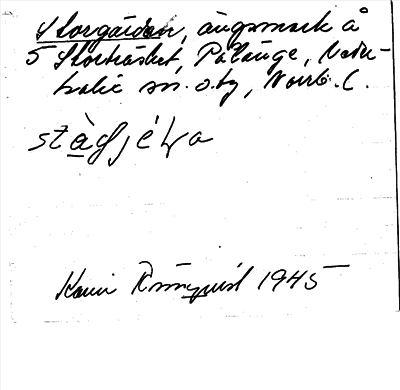 Storgärdan, ängsmark å
5 Storträsket, Pålänge, Neder-
kalix sn. o. tg, Norrb. l.
Karin Rönnqvist 1945